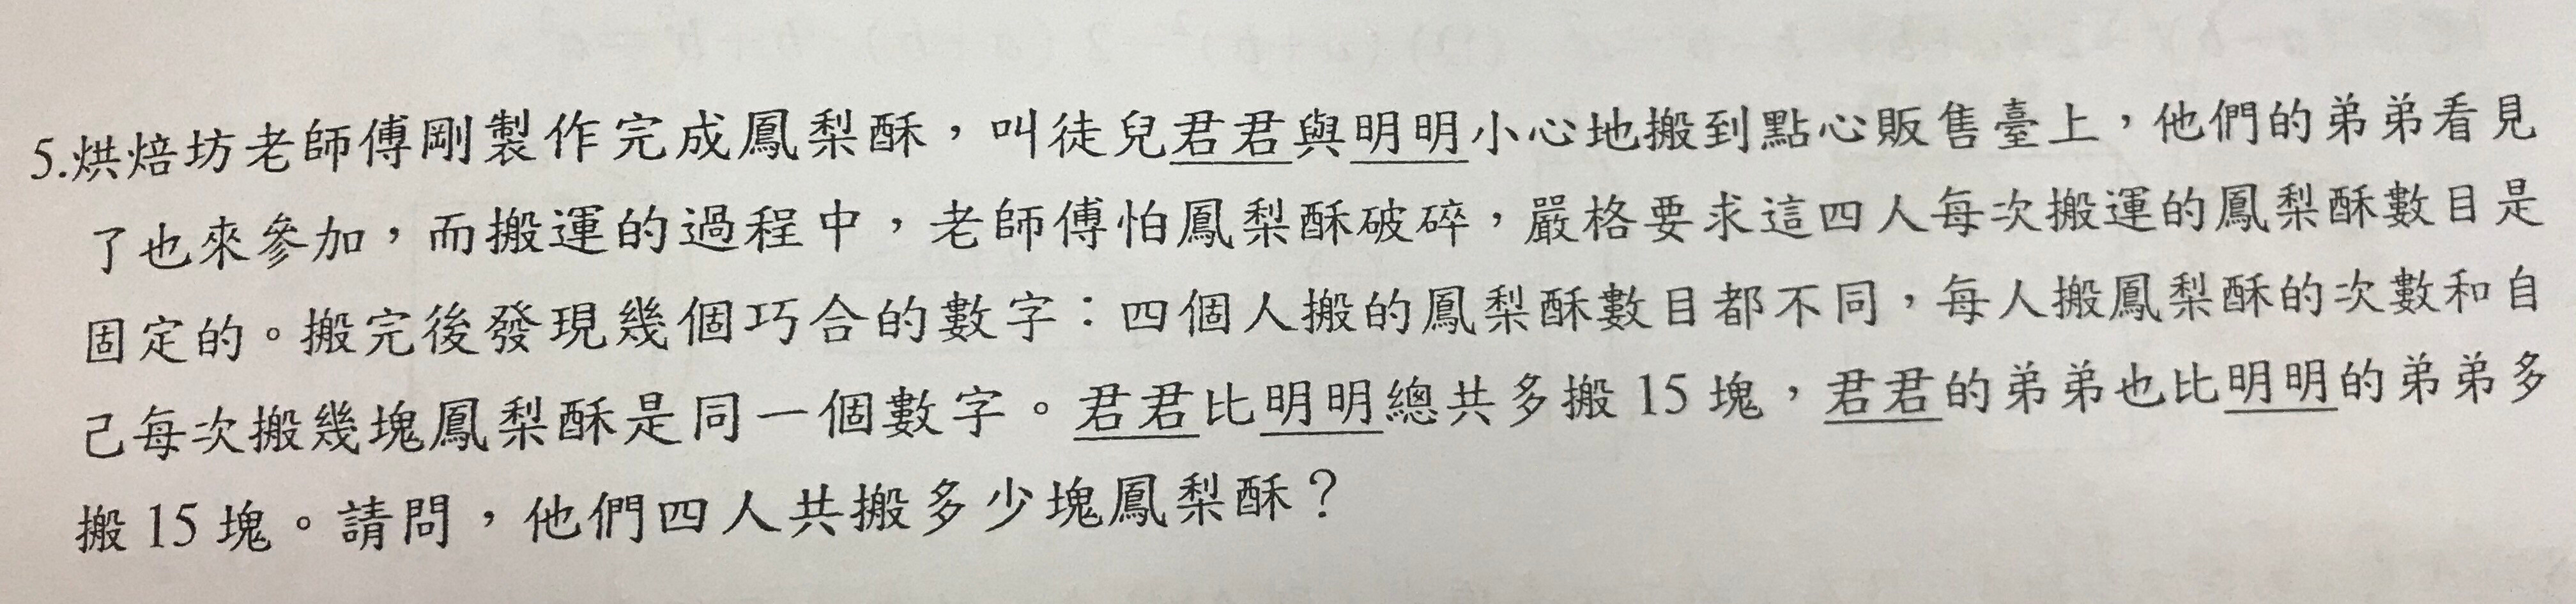 5.烘焙坊老師傅剛製作完成鳳梨酥，叫徒兒君君與明明小心地搬到點心販售臺上，他們的弟弟看見
了也來參加，而搬運的過程中，老師傅怕鳳梨酥破碎，嚴格要求這四人每次搬運的鳳梨酥數目是
固定的。搬完後發現幾個巧合的數字：四個人搬的鳳梨酥數目都不同，每人搬鳳梨酥的次數和自
己每次搬幾塊鳳梨酥是同一個數字。君君比明明總共多搬 15 塊，君君的弟弟也比明明的弟弟多
搬 15 塊。請問，他們四人共搬多少塊鳳梨酥？